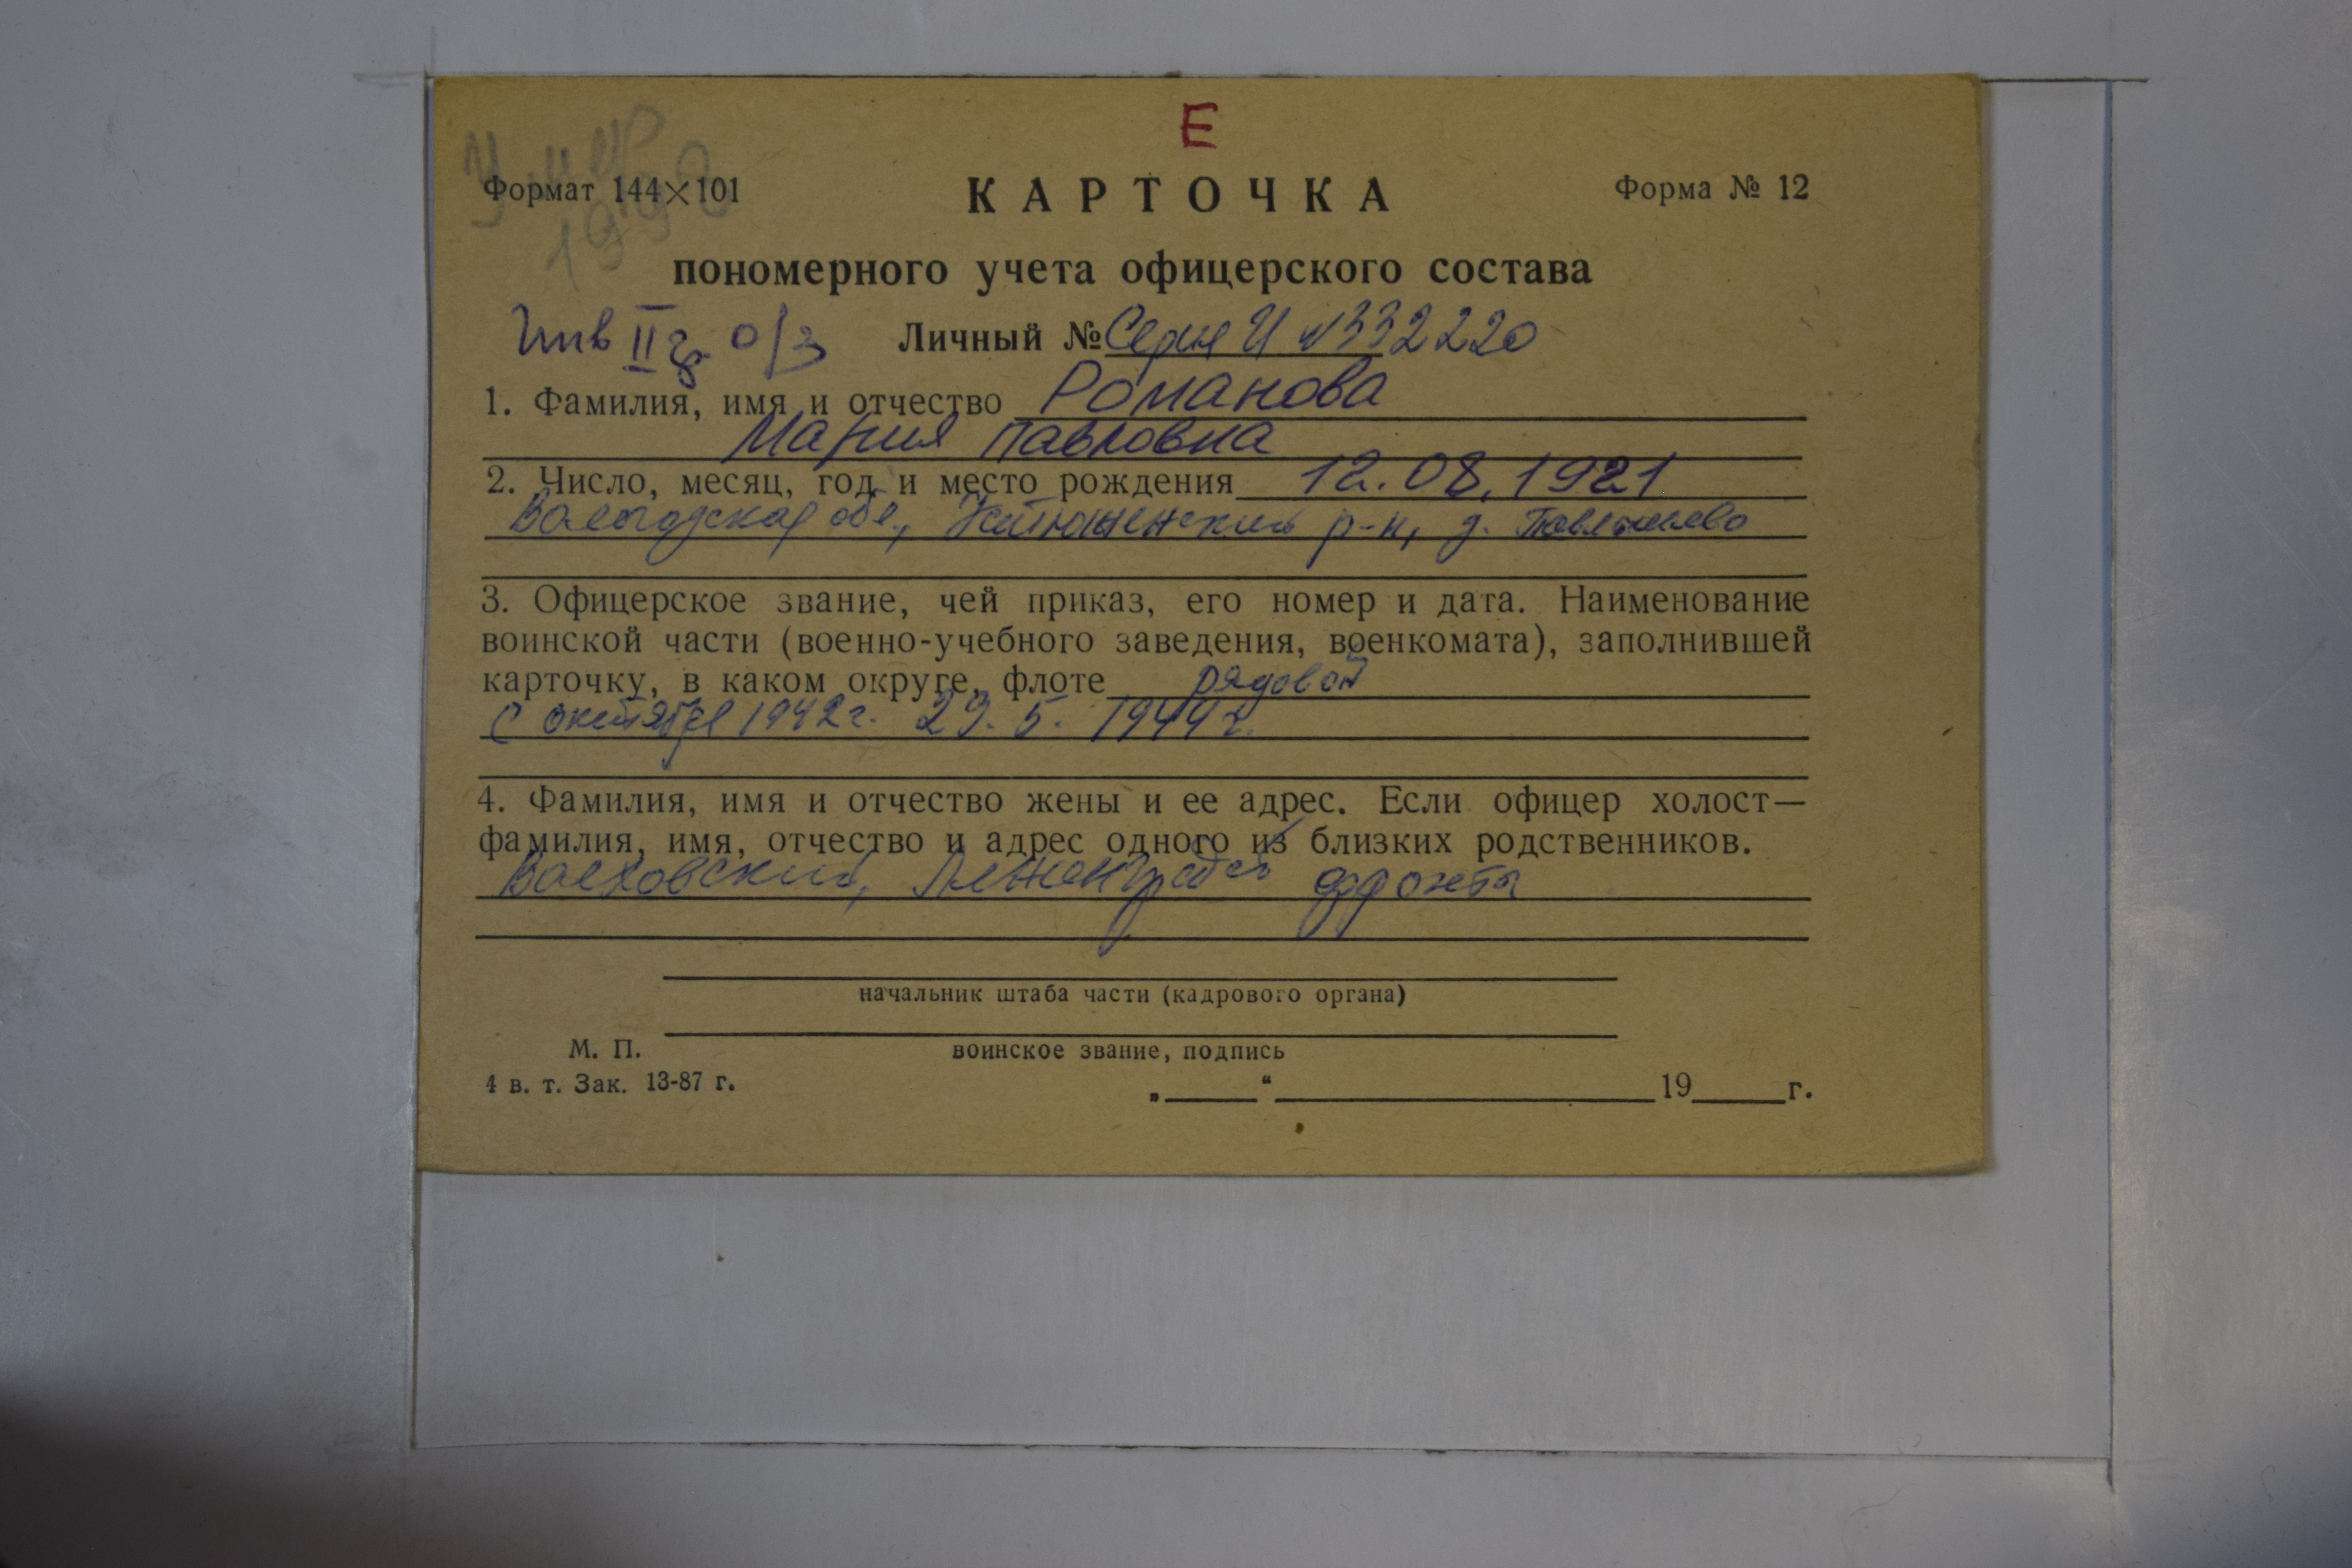 Е
Умер
1998
Формат 144×101
КАРТОЧКА
Форма № 12
пономерного учета офицерского состава
Инв II гр. о/з
Личный № Серия И №332220
1. Фамилия, имя и отчество Романова
Мария Павловна
2. Число, месяц, год и место рождения 12.08.1921
Вологодская обл., Устюженский р-н, д.
3. Офицерское звание, чей приказ, его номер и дата. Наименование
воинской части (военно-учебного заведения, военкомата), заполнившей
карточку, в каком округе, флоте рядовой
с октября 1942 г. 29. 5. 1944 г.
4. Фамилия, имя и отчество жены и ее адрес. Если офицер холост—
фамилия, имя, отчество и адрес одного из близких родственников.
Волховский, фронты
начальник штаба части (кадрового органа)
М. П.
воинское звание, подпись
4 в. т. Зак. 13-87 г.
„ “ 19 г.